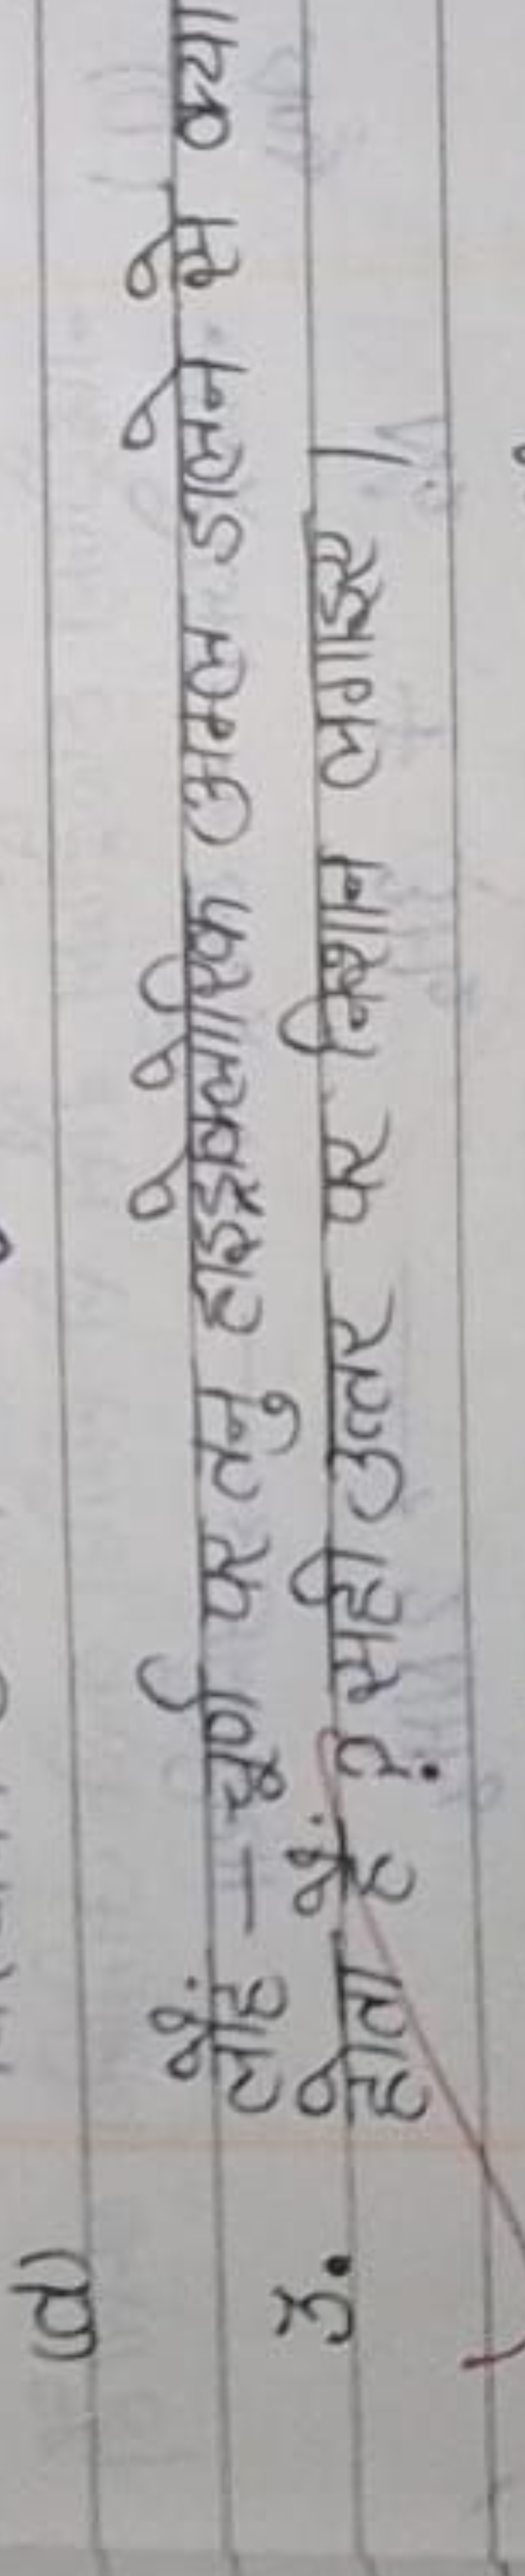 (d)
लौहं - चूर्ण पर तनु हाइड्रोक्लोरिक अम्ल डालने से क्या
उ. होता हैं? सही उत्तर पर निशान लगाइए।